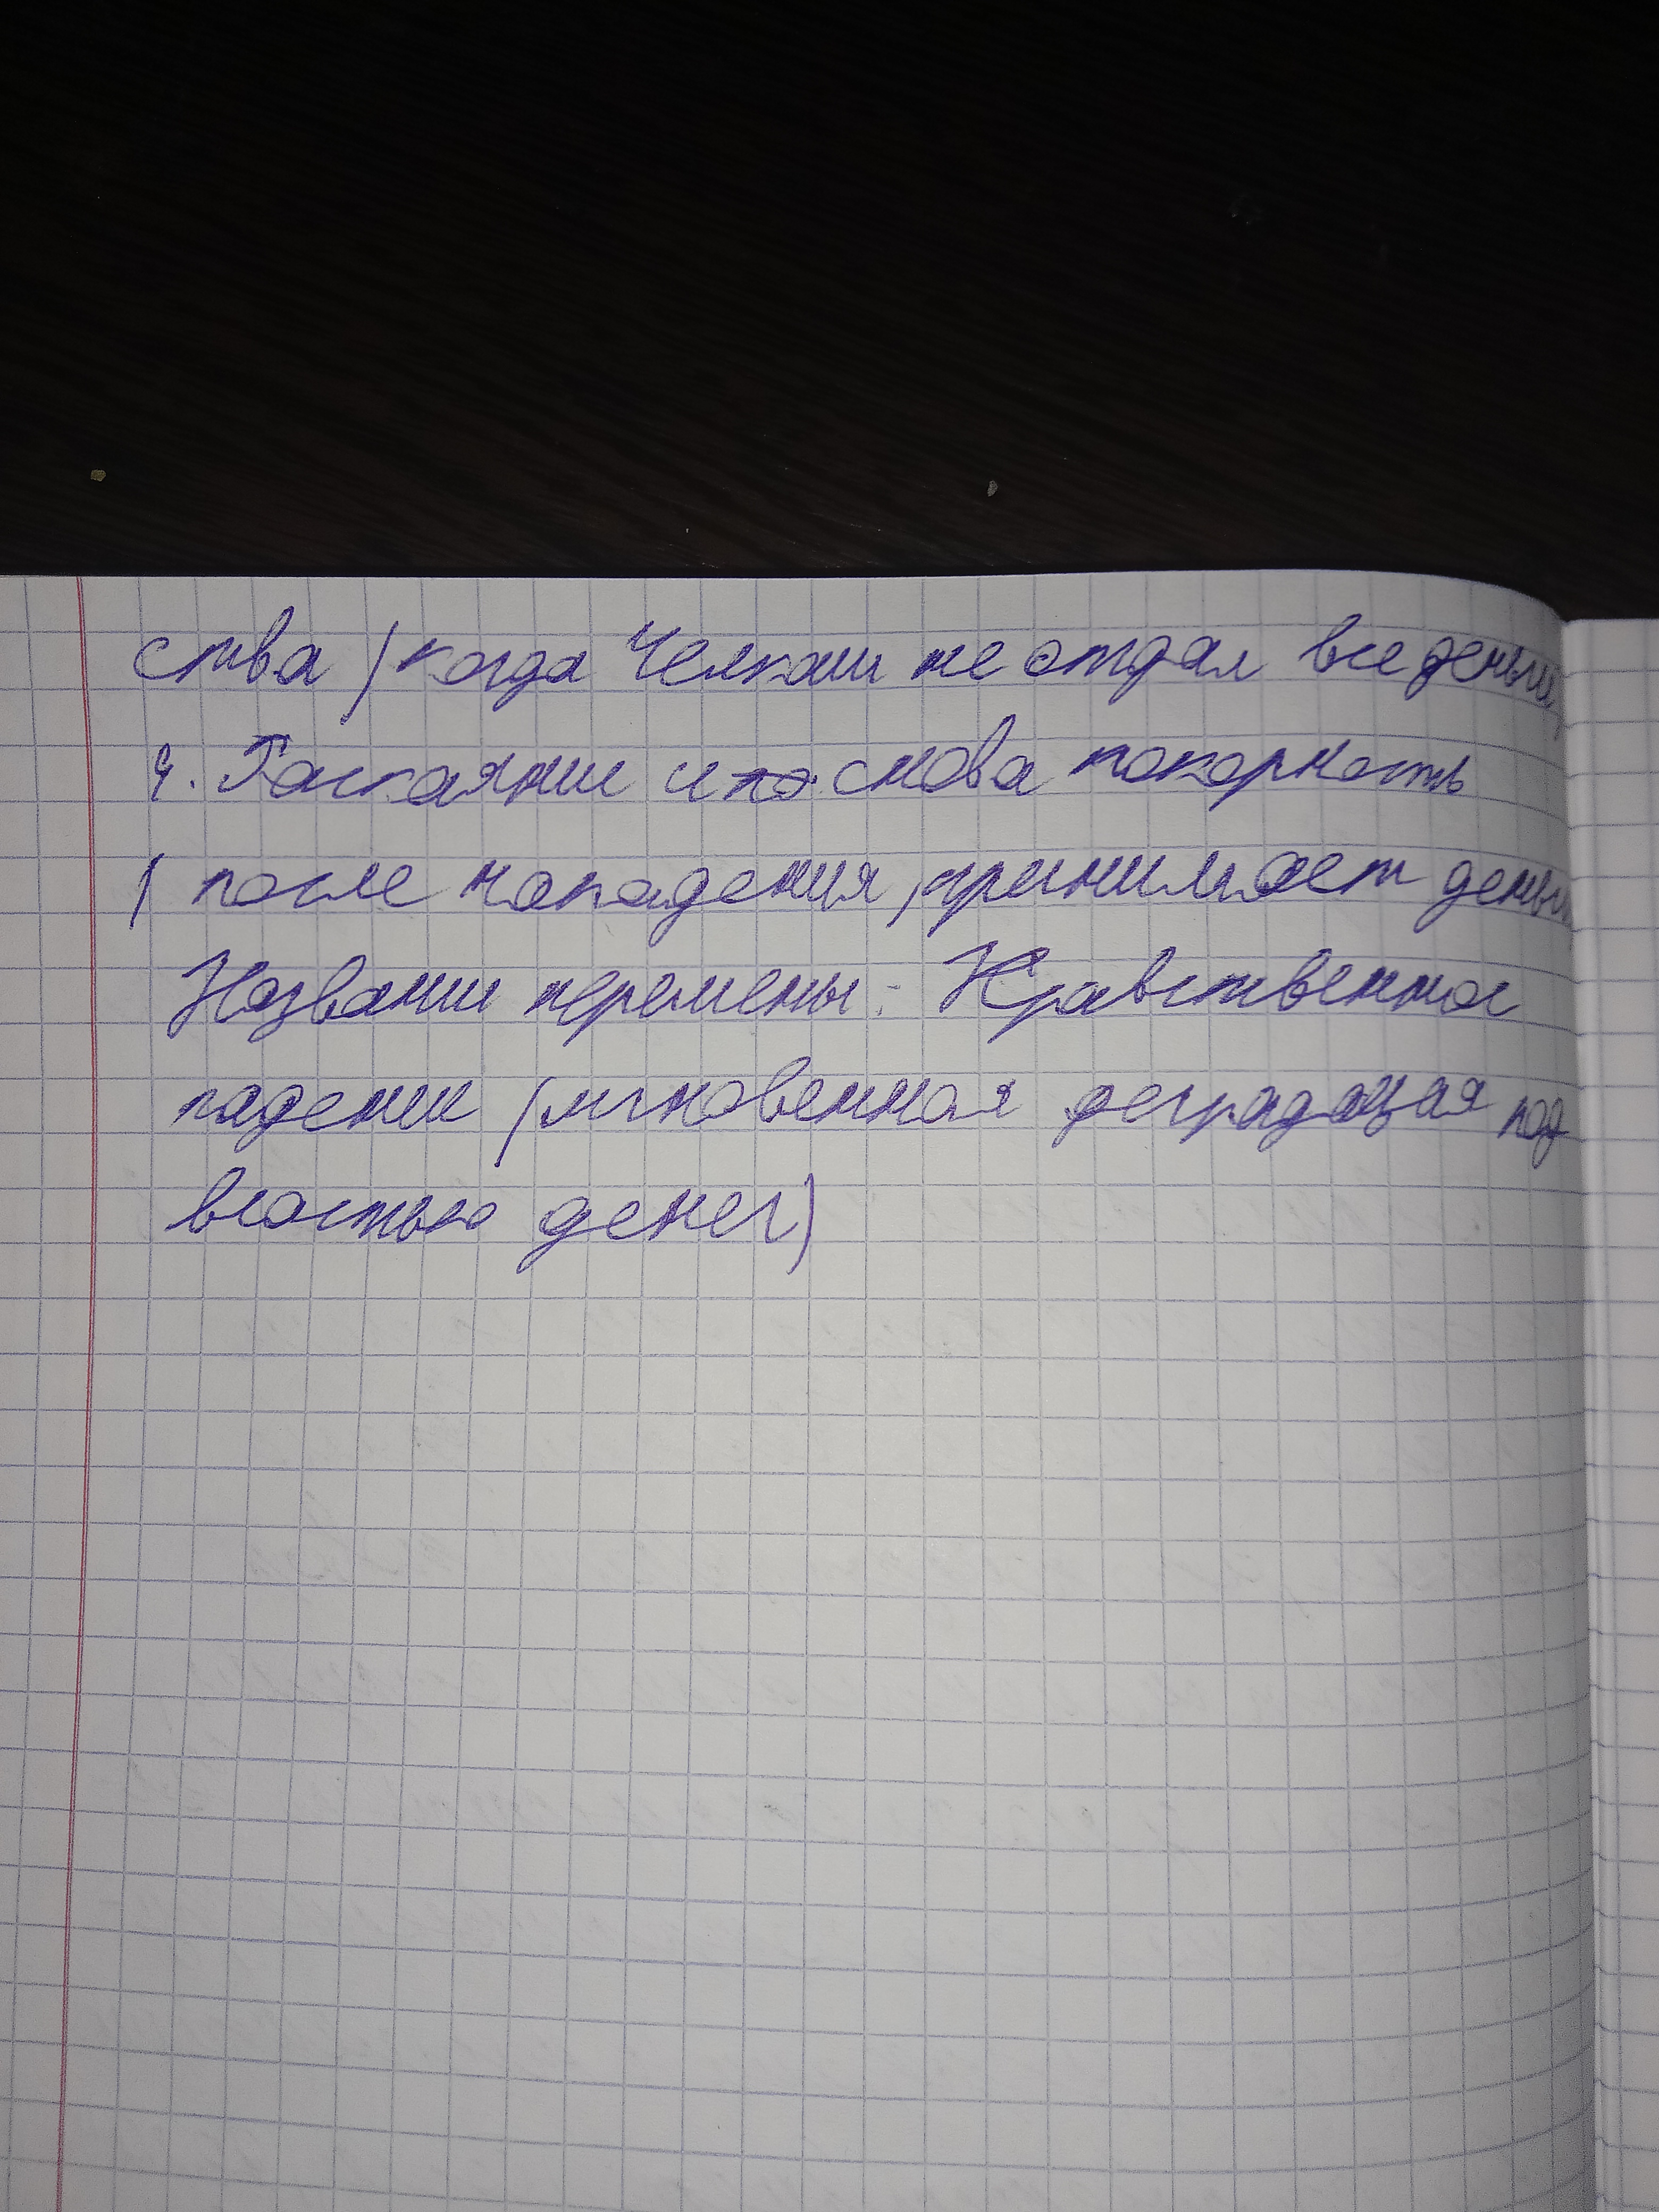 ства (когда Челкаш не отдал все деньги)
4. Раскаяние и по снова покорность
( после нападения, принимает деньги
Название перемены: Нравственное
падение (мгновенная деградация под
властью денег)